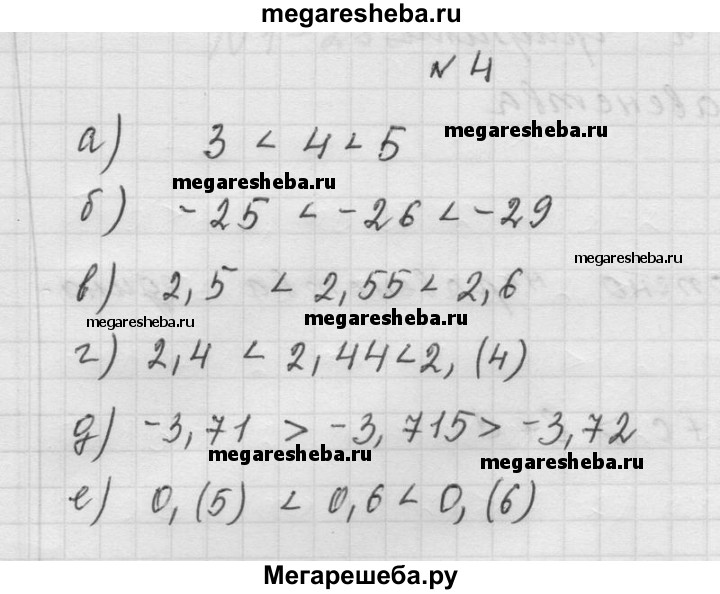 megaresheba.ru
№ 4
а) 3 < 4 < 5
megaresheba.ru
megaresheba.ru
б) -25 < -26 < -29
megaresheba.ru
в) 2,5 < 2,55 < 2,6
megaresheba.ru
megaresheba.ru
г) 2,4 < 2,44 < 2,(4)
д) -3,71 > -3,715 > -3,72
megaresheba.ru
megaresheba.ru
е) 0,(5) < 0,6 < 0,(6)
Мегарешеба.ру